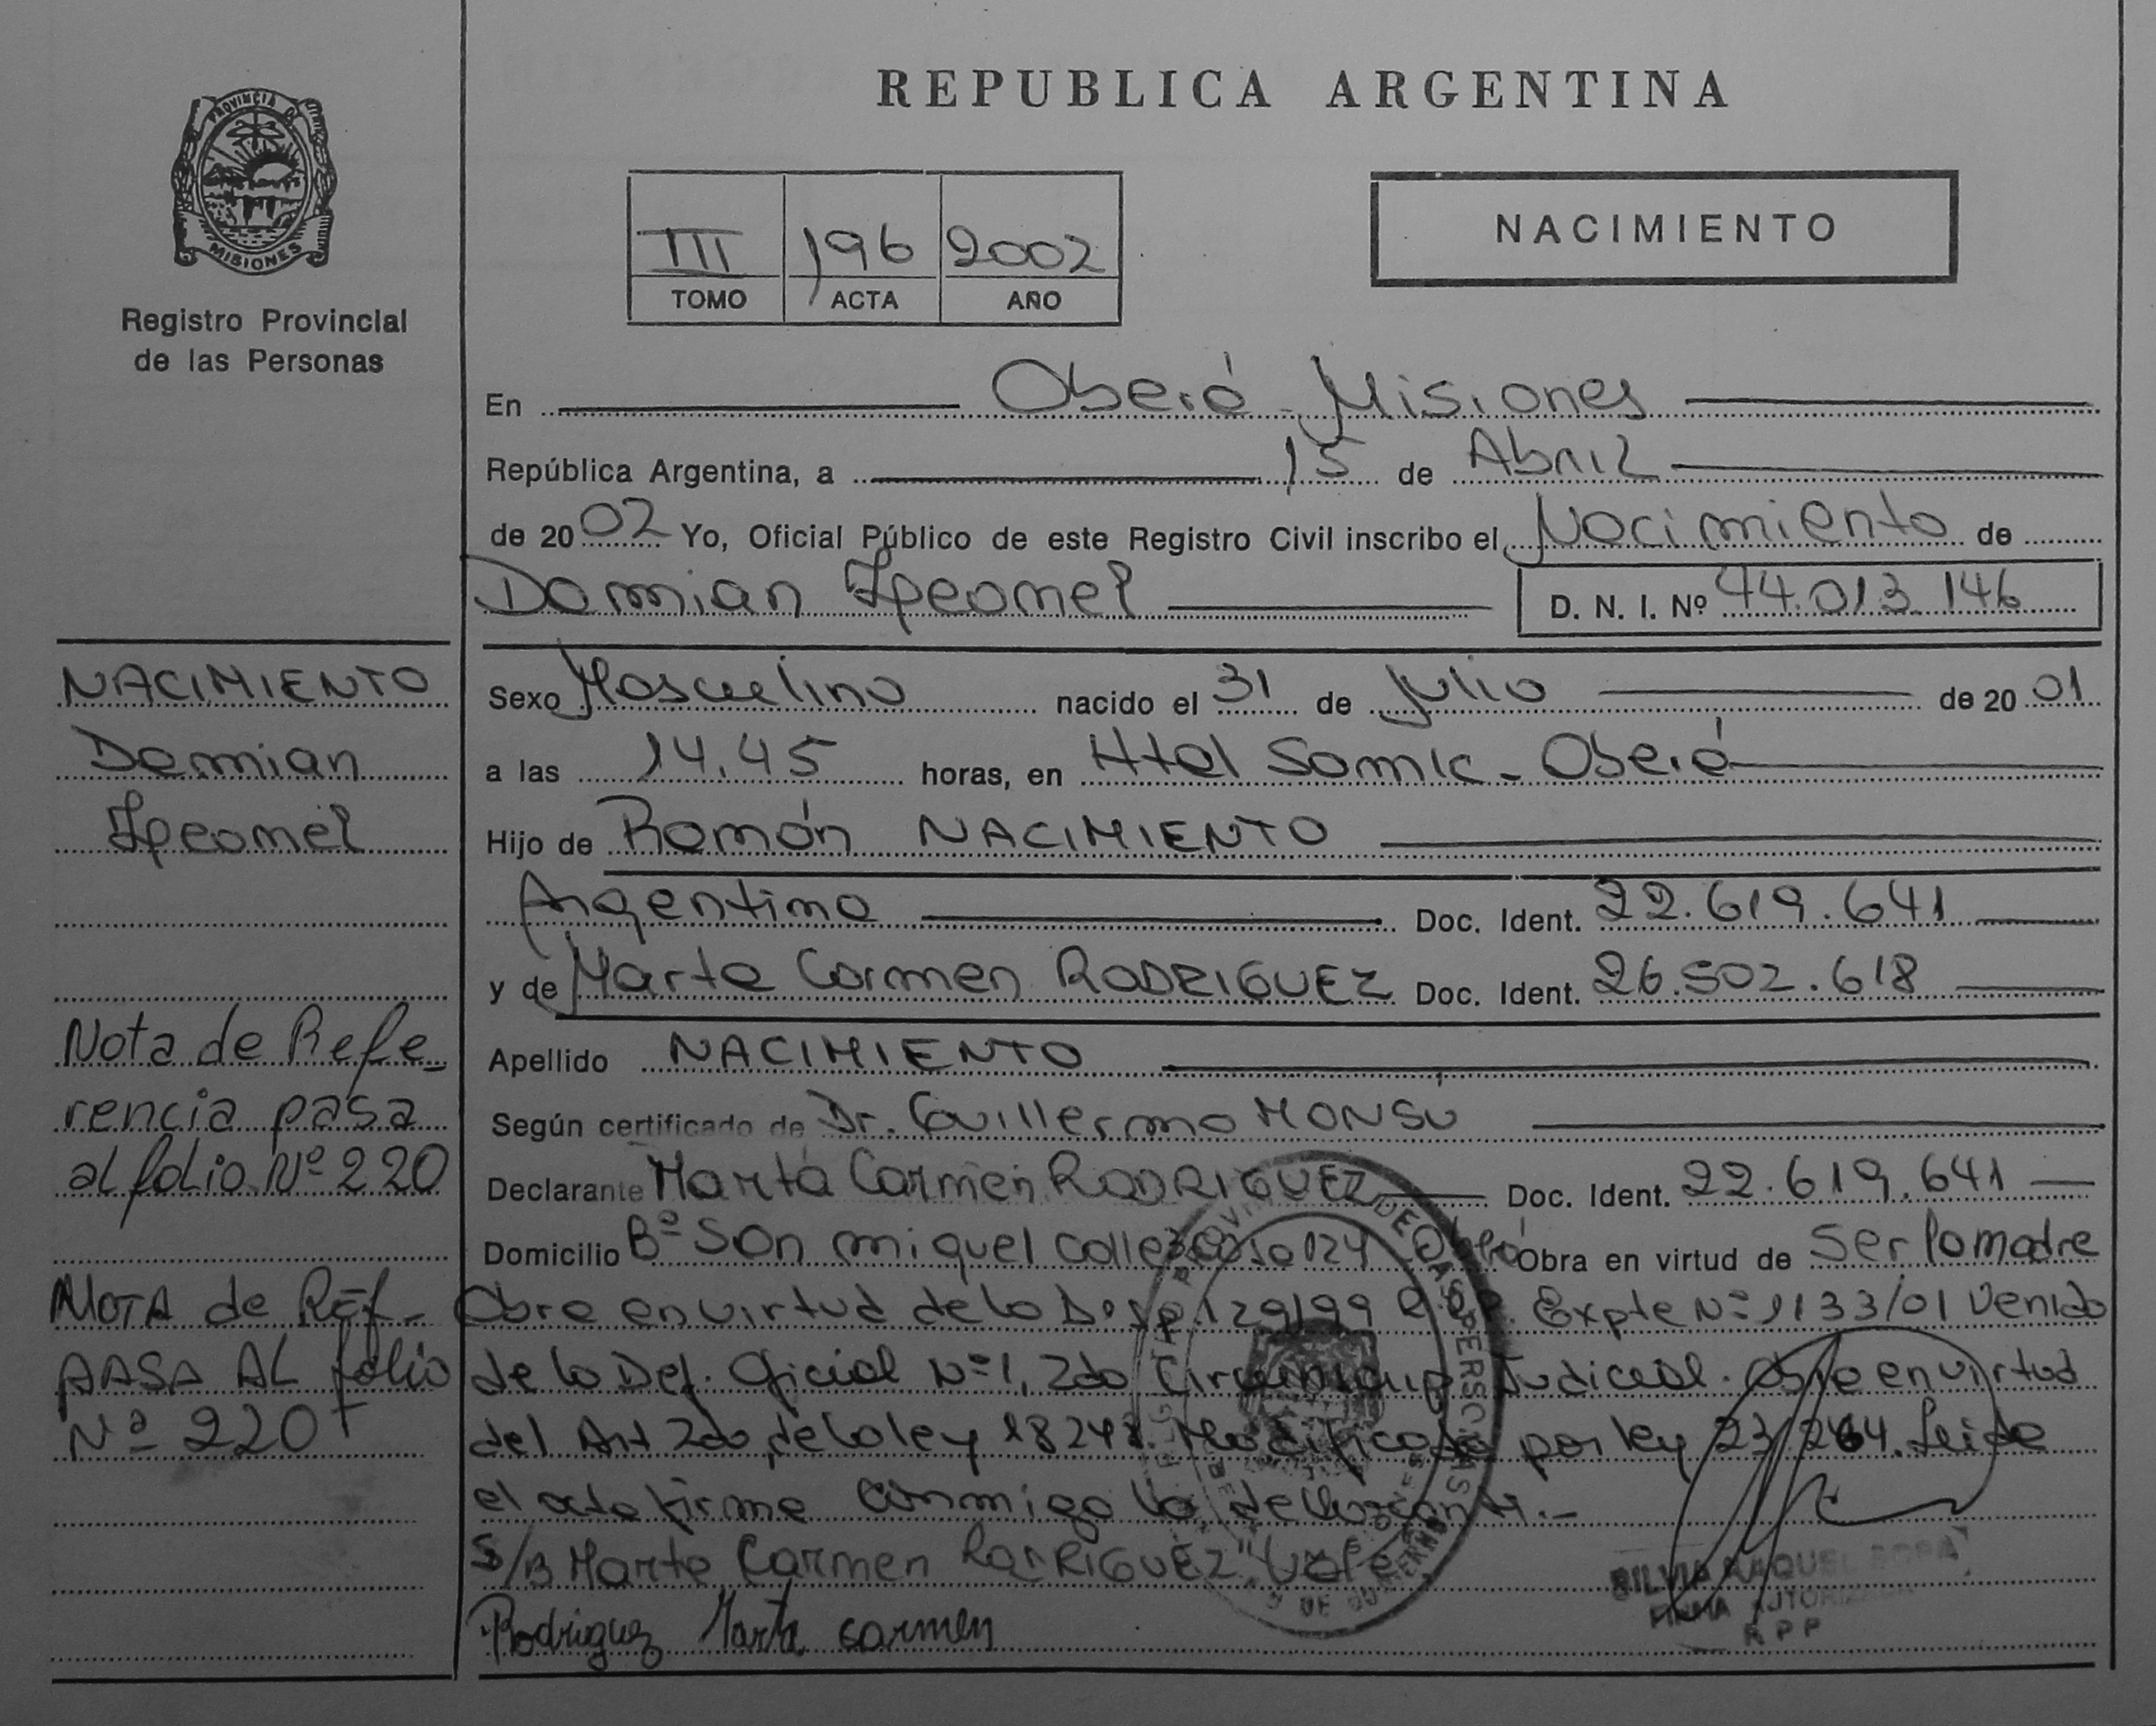 REPUBLICA ARGENTINA
PROVINCIA DE
MISIONES
Registro Provincial
de las Personas
III 196 2002
TOMO ACTA AÑO
NACIMIENTO
En Oberá - Misiones
República Argentina, a 15 de Abril
de 20 02 Yo, Oficial Público de este Registro Civil inscribo el Nacimiento de
Damian
D. N. I. Nº 44.013.146
NACIMIENTO
Damian
Sexo Masculino nacido el 31 de Julio de 20 01
a las 14.45 horas, en Htal Samic - Oberá
Hijo de Ramón NACIMIENTO
Argentino Doc. Ident. 22.619.641
y de Marta Carmen RODRIGUEZ Doc. Ident. 26.502.618
Apellido NACIMIENTO
Según certificado de Dr. Guillermo MONSU
Declarante Marta Carmen RODRIGUEZ Doc. Ident. 22.619.641
Domicilio Bº San miguel calle 124 Oberá Obra en virtud de ser la madre
Obra en virtud de la Disp. 129/99 Expte Nº 1133/01 Venido
de la Def. Oficial Nº 1, 2da Judicial. Obra en virtud
del Art 2do, de la ley 18248. Modificada por ley 23.264. Leida
el acta firma conmigo la declarante.-
S/B Marta Carmen RODRIGUEZ "Vale
Rodriguez Marta carmen
Nota de Refe-
rencia pasa
al folio Nº 220
NOTA de REF-
PASA AL folio
Nº 220
SILVIA RAQUEL
FIRMA AUTORIZADA
R P P